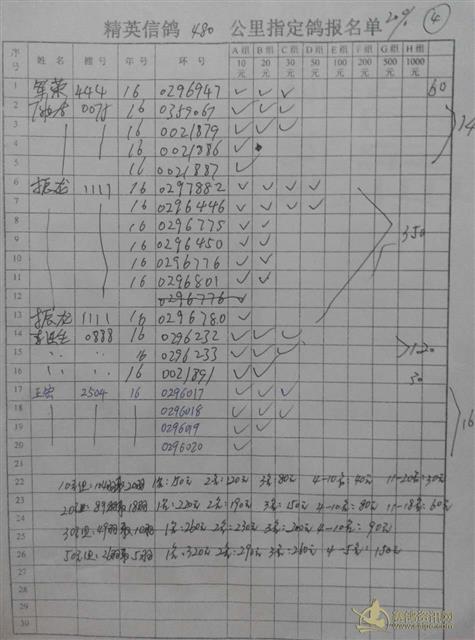 精英信鸽 480 公里指定鸽报名单 20% ④
序号 姓名 棚号 年号 环号 A组10元 B组20元 C组30元 D组50元 E组100元 F组200元 G组500元 H组1000元
1 军荣 444 16 0296947 ✓ ✓ ✓ 60
2 0075 16 0359067 ✓ ✓ ✓
3 16 0021879 ✓ ✓ ✓
4 16 0021886 ✓
5 16 0021887 ✓
6 振龙 1111 16 0297882 ✓ ✓ ✓ ✓
7 16 0296446 ✓ ✓ ✓ ✓
8 16 0296775 ✓ ✓
9 16 0296450 ✓ ✓
10 16 0296776 ✓ ✓
11 16 0296801 ✓ ✓
12 0296776 ✓
350
13 振龙 1111 16 0296780 ✓
14 0888 16 0296232 ✓ ✓ ✓
15 16 0296233 ✓ ✓ ✓ 120
16 16 0021891 ✓ ✓ 30
17 王宏 2504 16 0296017 ✓ ✓ ✓
18 0296018 ✓ ✓ ✓
19 0296019 ✓ ✓
20 0296020 ✓ ✓
21
22 1名:150元 2名:120元 3名:80元 4-10名:40元 11-20名:30元
23 1名:220元 2名:190元 3名:150元 4-10名:80元 11-18名:60元
24
25 1名:260元 2名:230元 3名:200元 4-10名:90元
26 1名:320元 2名:290元 3名:260元 4-5名:150元
27
28
29
30
赛鸽资讯网